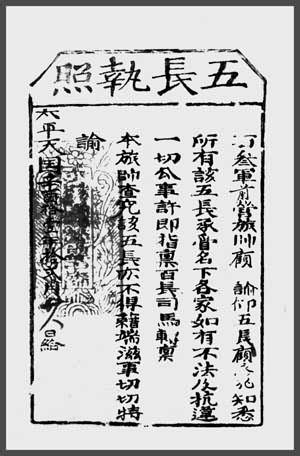 五長執照
叁軍前營旅帥顧 諭仰五長顧知悉
所有該五長承管名下各家如有不法及抗違
一切公事許即指稟百長司馬轉稟
本旅帥查究該五長亦不得藉端滋事切切特
諭
太平天囯辛酉拾壹年拾月日給